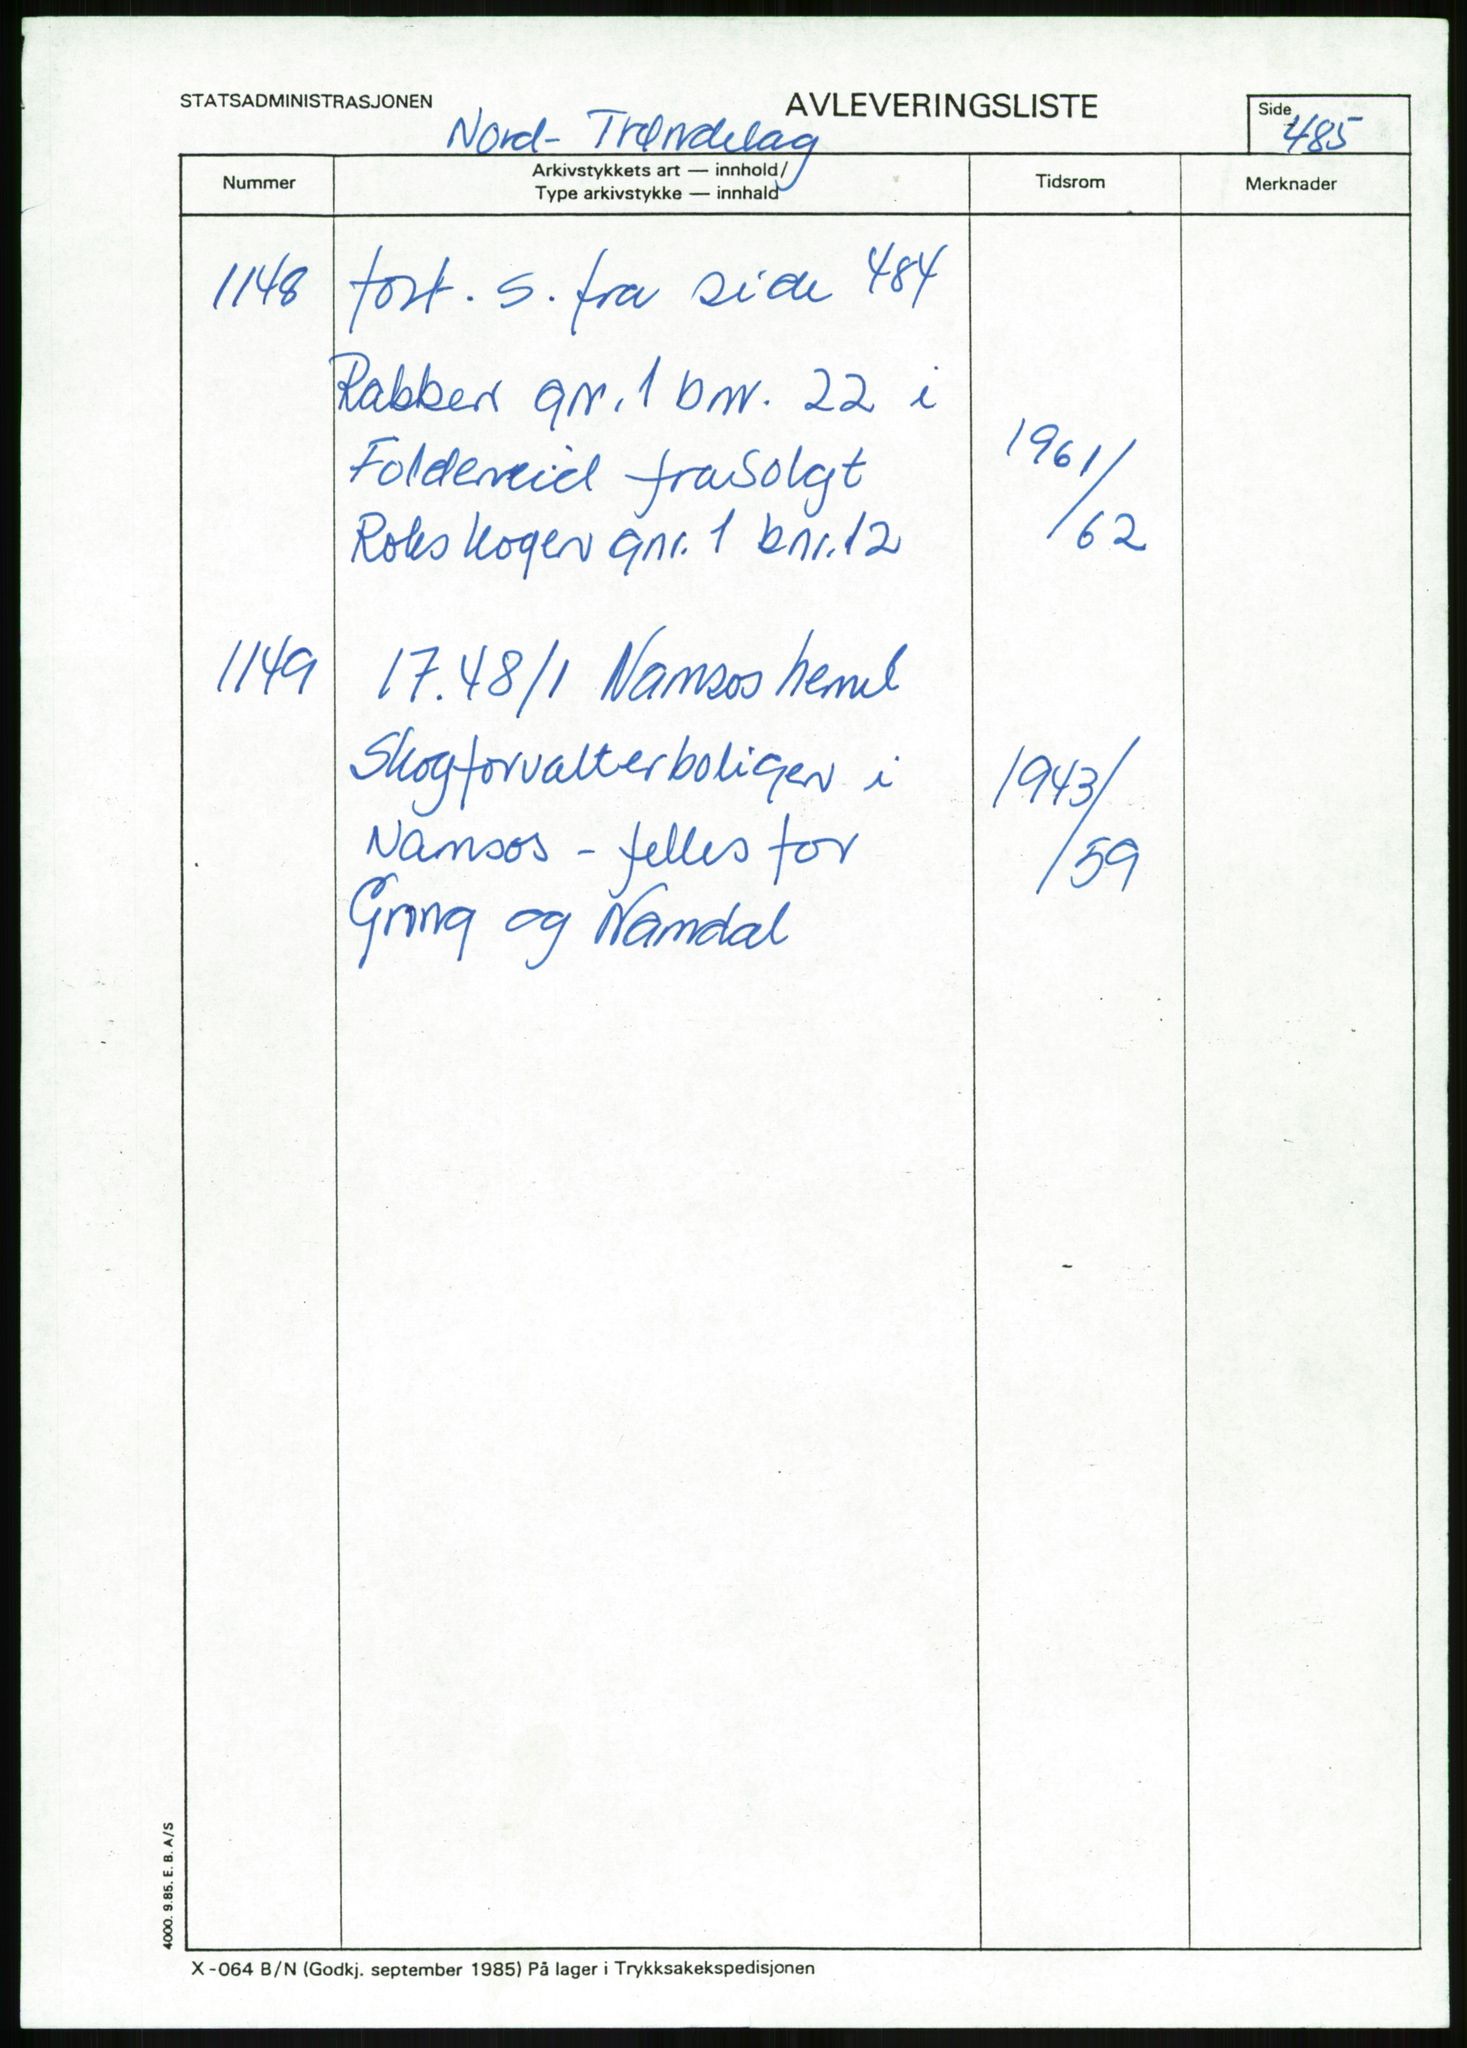 STATSADMINISTRASJONEN
AVLEVERINGSLISTE
Side
485
Nord-Trøndelag
Nummer
Arkivstykkets art — innhold/
Type arkivstykke — innhald
Tidsrom
Merknader
1148 fort. s. fra side 484
Rabben gnr. 1 bnr. 22 i
Foldereid frasolgt 1961/
Rokskogen gnr. 1 bnr. 12 /62
1149 17.48/1 Namsos herred
Skogforvalterboligen i 1943/
Namsos - felles for /59
Grong og Namdal
4000. 9.85. E. B. A/S
X-064 B/N (Godkj. september 1985) På lager i Trykksakekspedisjonen